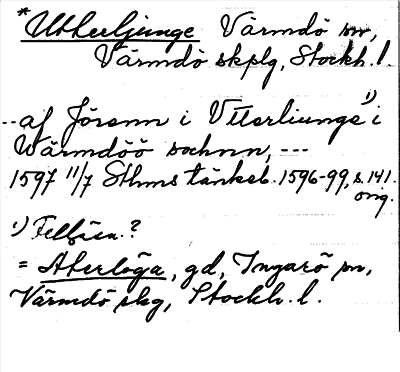 *Utterljunge Värmdö sn,
Värmdö skplg, Stockh. l.
--af Jörenn i Vtterliunge 1) i
Wärmdöö sochnn, ---
1597 11/7 Sthms tänkeb. 1596-99, s. 141.
orig.
1) Felläsn.?
= Återlöga, gd, Ingarö sn,
Värmdö skg, Stockh. l.